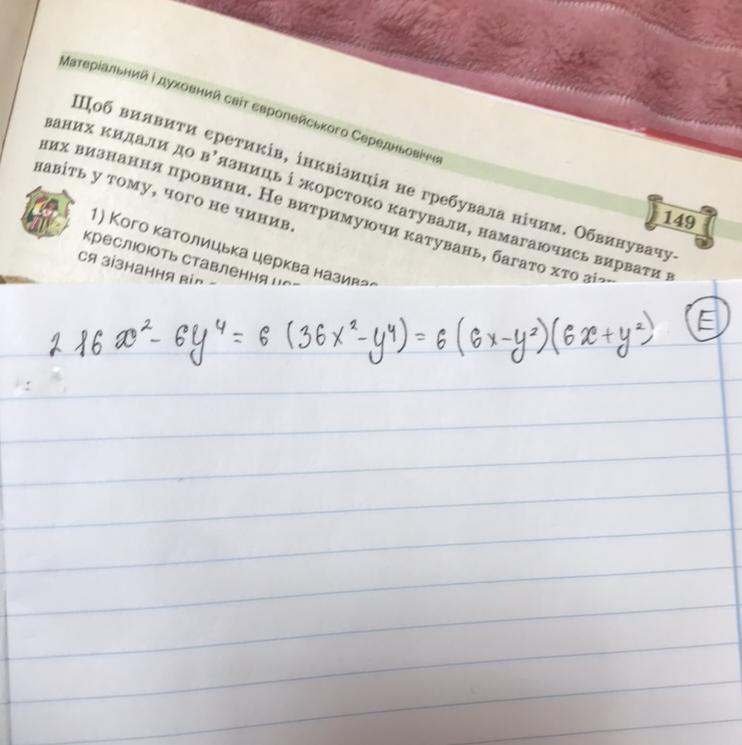 Матеріальний і духовний світ європейського Середньовіччя
149
Щоб виявити єретиків, інквізиція не гребувала нічим. Обвинувачу-
ваних кидали до в'язниць і жорстоко катували, намагаючись вирвати в
них визнання провини. Не витримуючи катувань, багато хто
навіть у тому, чого не чинив.
1) Кого католицька церква
креслюють ставлення
ся зізнання
216x² - 6y⁴ = 6 (36x² - y⁴) = 6 (6x - y²)(6x + y²) Е